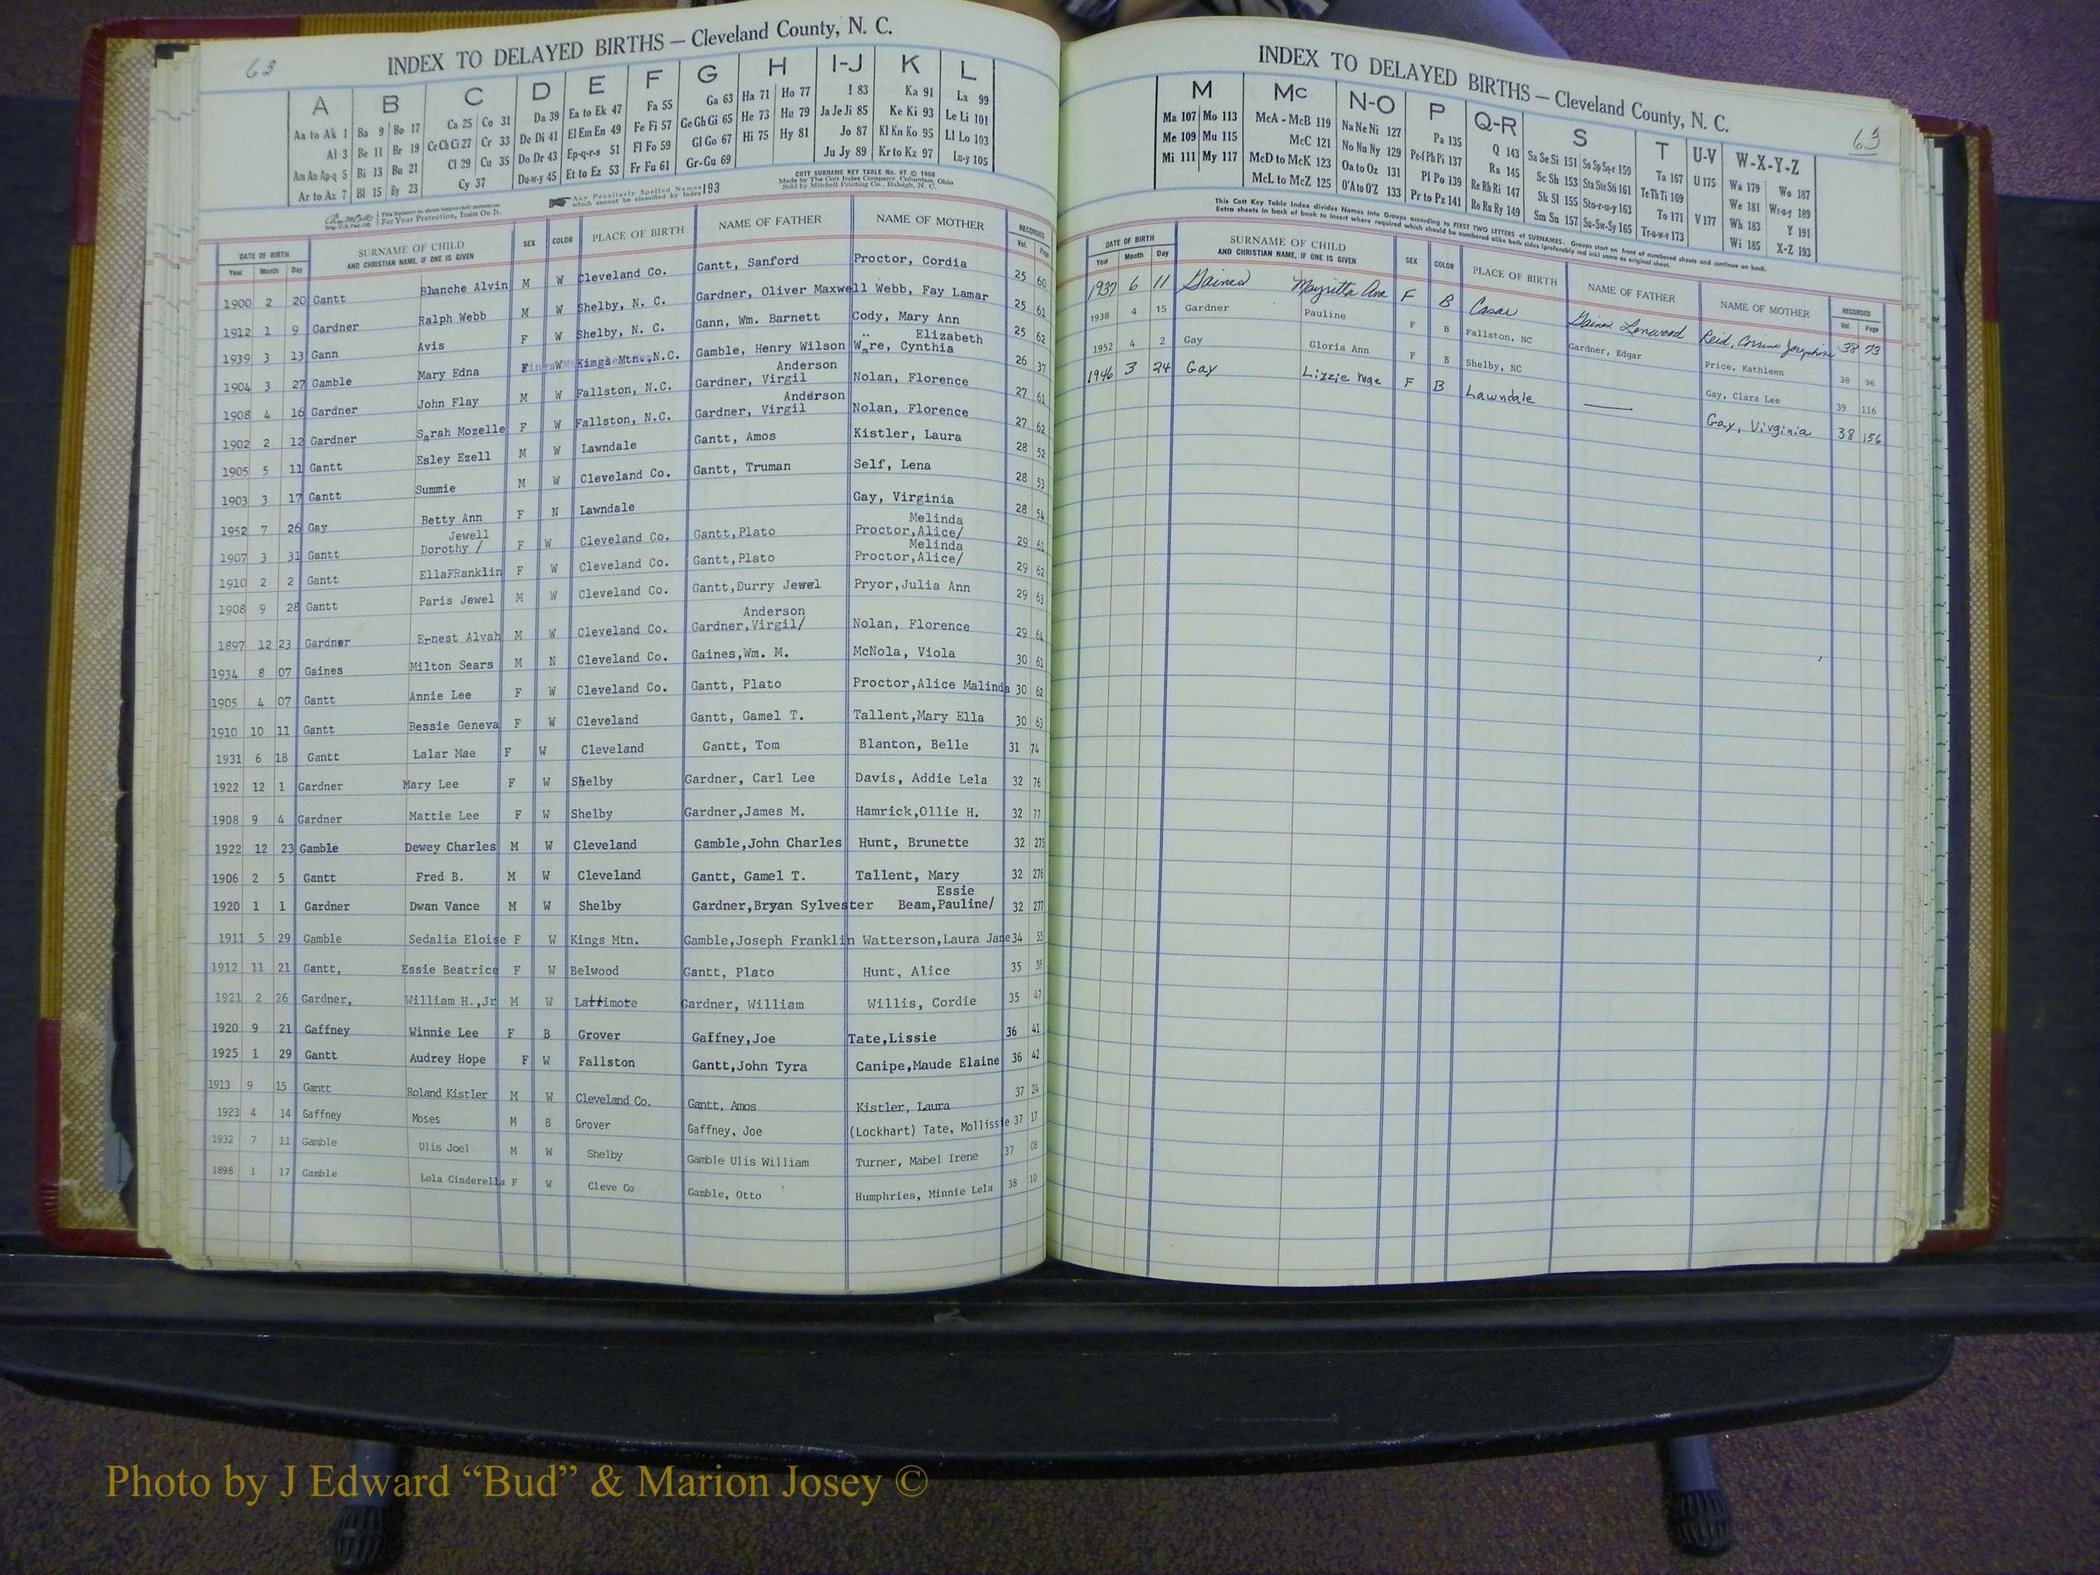 63
INDEX TO DELAYED BIRTHS — Cleveland County, N. C.
A B C D E F G H I-J K L
Aa to Ak 1 Ba 9 Bo 17 Ca 25 Co 31 Da 39 Ea to Ek 47 Fa 55 Ga 63 Ha 71 Ho 77 I 83 Ka 91 La 99
Al 3 Be 11 Br 19 Ce Ch Ci 27 Cr 33 De Di 41 El Em En 49 Fe Fi 57 Ge Gh Gi 65 He 73 Hu 79 Ja Je Ji 85 Ke Ki 93 Le Li 101
Am An Ap-q 5 Bi 13 Bu 21 Cl 29 Cu 35 Do Dr 43 Ep-q-r-s 51 Fl Fo 59 Gl Go 67 Hi 75 Hy 81 Jo 87 Kl Kn Ko 95 Ll Lo 103
Ar to Az 7 Bl 15 By 23 Cy 37 Du-w-y 45 Et to Ez 53 Fr Fu 61 Gr-Gu 69 Ju Jy 89 Kr to Kz 97 Lu-y 105
For Your Protection, Insist On It.
Any Peculiarly Spelled Names which cannot be classified by Index 193
COTT SURNAME KEY TABLE No. 97 © 1960
Made by The Cott Index Company, Columbus, Ohio
Sold by Mitchell Printing Co., Raleigh, N. C.
DATE OF BIRTH SURNAME OF CHILD SEX COLOR PLACE OF BIRTH NAME OF FATHER NAME OF MOTHER RECORDED
Year Month Day AND CHRISTIAN NAME, IF ONE IS GIVEN Vol. Page
1900 2 20 Gantt Blanche Alvin M W Cleveland Co. Gantt, Sanford Proctor, Cordia 25 60
1912 1 9 Gardner Ralph Webb M W Shelby, N. C. Gardner, Oliver Maxwell Webb, Fay Lamar 25 61
1939 3 13 Gann Avis F W Shelby, N. C. Gann, Wm. Barnett Cody, Mary Ann 25 62
1904 3 27 Gamble Mary Edna F W Kings Mtn., N.C. Gamble, Henry Wilson Ware, Cynthia Elizabeth 26 37
1908 4 16 Gardner John Flay M W Fallston, N.C. Gardner, Virgil Anderson Nolan, Florence 27 61
1902 2 12 Gardner Sarah Mozelle F W Fallston, N.C. Gardner, Virgil Anderson Nolan, Florence 27 62
1905 5 11 Gantt Esley Ezell M W Lawndale Gantt, Amos Kistler, Laura 28 52
1903 3 17 Gantt Summie M W Cleveland Co. Gantt, Truman Self, Lena 28 53
1952 7 26 Gay Betty Ann F N Lawndale Gay, Virginia 28 54
1907 3 31 Gantt Dorothy / Jewell F W Cleveland Co. Gantt,Plato Proctor,Alice/ Melinda 29 61
1910 2 2 Gantt EllaFRanklin F W Cleveland Co. Gantt,Plato Proctor,Alice/ Melinda 29 62
1908 9 28 Gantt Paris Jewel M W Cleveland Co. Gantt,Durry Jewel Pryor,Julia Ann 29 63
1897 12 23 Gardner Ernest Alvah M W Cleveland Co. Gardner,Virgil/ Anderson Nolan, Florence 29 64
1934 8 07 Gaines Milton Sears M N Cleveland Co. Gaines,Wm. M. McNola, Viola 30 61
1905 4 07 Gantt Annie Lee F W Cleveland Co. Gantt, Plato Proctor,Alice Malinda 30 62
1910 10 11 Gantt Bessie Geneva F W Cleveland Gantt, Gamel T. Tallent,Mary Ella 30 63
1931 6 18 Gantt Lalar Mae F W Cleveland Gantt, Tom Blanton, Belle 31 74
1922 12 1 Gardner Mary Lee F W Shelby Gardner, Carl Lee Davis, Addie Lela 32 76
1908 9 4 Gardner Mattie Lee F W Shelby Gardner,James M. Hamrick,Ollie H. 32 77
1922 12 23 Gamble Dewey Charles M W Cleveland Gamble,John Charles Hunt, Brunette 32 275
1906 2 5 Gantt Fred B. M W Cleveland Gantt, Gamel T. Tallent, Mary 32 276
1920 1 1 Gardner Dwan Vance M W Shelby Gardner,Bryan Sylvester Beam,Pauline/ Essie 32 277
1911 5 29 Gamble Sedalia Eloise F W Kings Mtn. Gamble,Joseph Franklin Watterson,Laura Jane 34 55
1912 11 21 Gantt, Essie Beatrice F W Belwood Gantt, Plato Hunt, Alice 35
1921 2 26 Gardner, William H.,Jr M W Lattimore Gardner, William Willis, Cordie 35 47
1920 9 21 Gaffney Winnie Lee F B Grover Gaffney,Joe Tate,Lissie 36 41
1925 1 29 Gantt Audrey Hope F W Fallston Gantt,John Tyra Canipe,Maude Elaine 36 42
1913 9 15 Gantt Roland Kistler M W Cleveland Co. Gantt, Amos Kistler, Laura 37 24
1923 4 14 Gaffney Moses M B Grover Gaffney, Joe (Lockhart) Tate, Mollissie 37 17
1932 7 11 Gamble Ulis Joel M W Shelby Gamble Ulis William Turner, Mabel Irene 37 08
1898 1 17 Gamble Lola Cinderella F W Cleve Co Gamble, Otto Humphries, Minnie Lela 38 10
INDEX TO DELAYED BIRTHS — Cleveland County, N. C.
63
M Mc N-O P Q-R S T U-V W-X-Y-Z
Ma 107 Mo 113 McA - McB 119 Na Ne Ni 127 Pa 135 Q 143 Sa Se Si 151 So Sp Sq-r 159 Ta 167 U 175 Wa 179 Wo 187
Me 109 Mu 115 McC 121 No Nu Ny 129 Pe-f Ph Pi 137 Ra 145 Sc Sh 153 Sta Ste Sti 161 Te Th Ti 169 We 181 Wr-u-y 189
Mi 111 My 117 McD to McK 123 Oa to Oz 131 Pl Po 139 Re Rh Ri 147 Sk Sl 155 Sto-r-u-y 163 To 171 V 177 Wh 183 Y 191
McL to McZ 125 O'A to O'Z 133 Pr to Pz 141 Ro Ru Ry 149 Sm Sn 157 Su-Sw-Sy 165 Tr-u-w-y 173 Wi 185 X-Z 193
This Cott Key Table Index divides Names into Groups according to FIRST TWO LETTERS of SURNAMES. Groups start on front of numbered sheets and continue on back.
Extra sheets in back of book to insert where required which should be numbered alike both sides (preferably red ink) same as original sheet.
DATE OF BIRTH SURNAME OF CHILD SEX COLOR PLACE OF BIRTH NAME OF FATHER NAME OF MOTHER RECORDED
Year Month Day AND CHRISTIAN NAME, IF ONE IS GIVEN Vol. Page
1937 6 11 Gaines Mayritta Ann F B Casar Gaines Lenwood Reid, Corrine Josephine 38 73
1938 4 15 Gardner Pauline F B Fallston, NC Gardner, Edgar Price, Kathleen 38 96
1952 4 2 Gay Gloria Ann F B Shelby, NC Gay, Clara Lee 39 116
1946 3 24 Gay Lizzie Mae F B Lawndale —— Gay, Virginia 38 156
Photo by J Edward “Bud” & Marion Josey ©